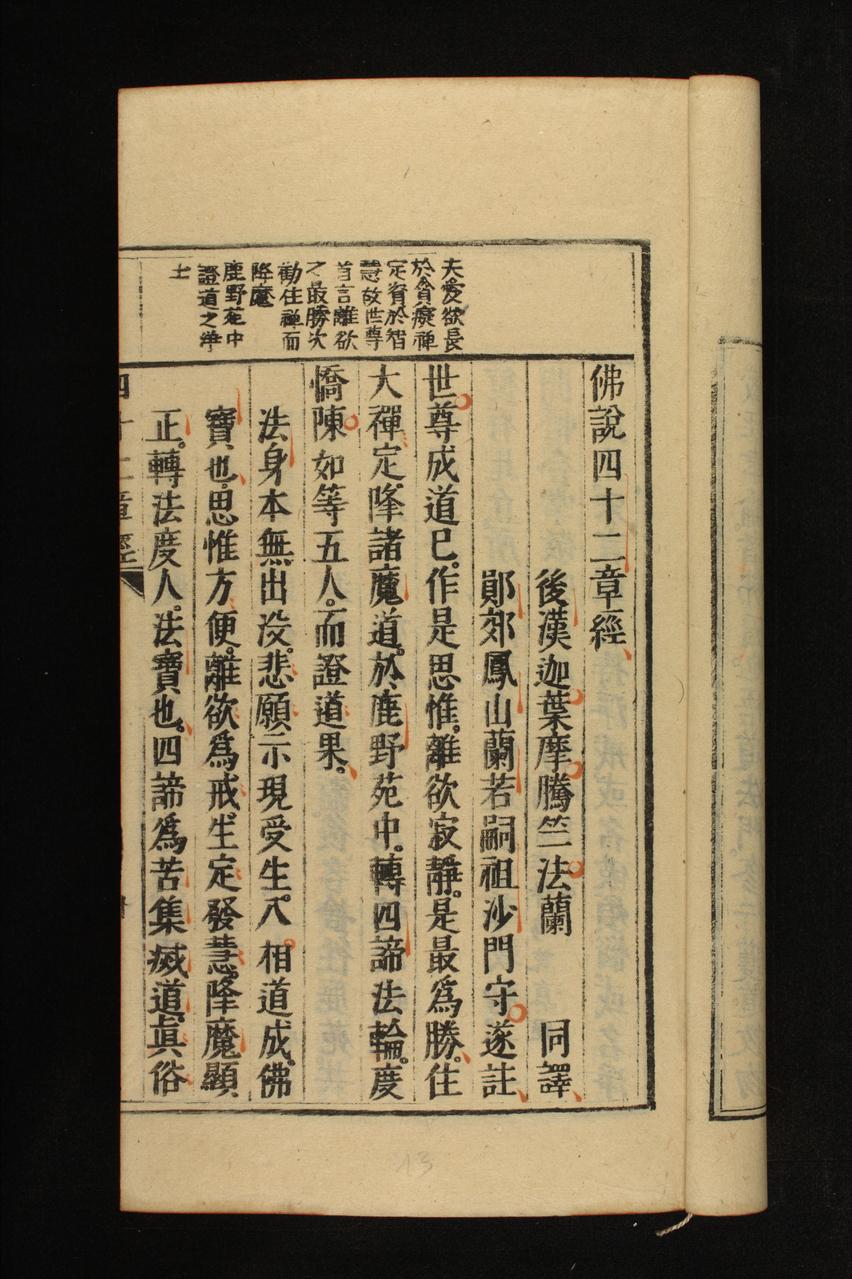 佛說四十二章經
後漢迦葉摩騰竺法蘭 同譯
鄖郊鳳山蘭若嗣祖沙門守遂註
世尊成道已。作是思惟。離欲寂靜。是最爲勝。住
大禪定。降諸魔道。於鹿野苑中。轉四諦法輪。度
憍陳如等五人。而證道果。
法身本無出沒。悲願示現受生。八相道成。佛
寶也。思惟方便。離欲爲戒。生定發慧。降魔顯
正。轉法度人。法寶也。四諦爲苦集㓕道。眞俗
夫愛欲長
於貪癡禪
定資於智
慧故世尊
首言離欲
之最勝次
勸住禪而
降魔
鹿野苑中
證道之淨
土
四十二章經
13